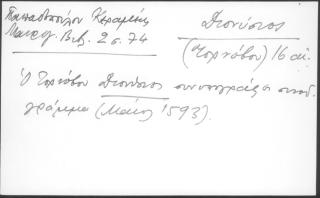 Παπαδοπούλου Κεραμέως
Μαυρογ. Βιβ. 2 σ. 74
Διονύσιος
(Τορνόβου) 16 αι.
Ὁ Τορνόβου Διονύσιος συνυπογράφει συνοδ.
γράμμα (Μάϊος 1593).